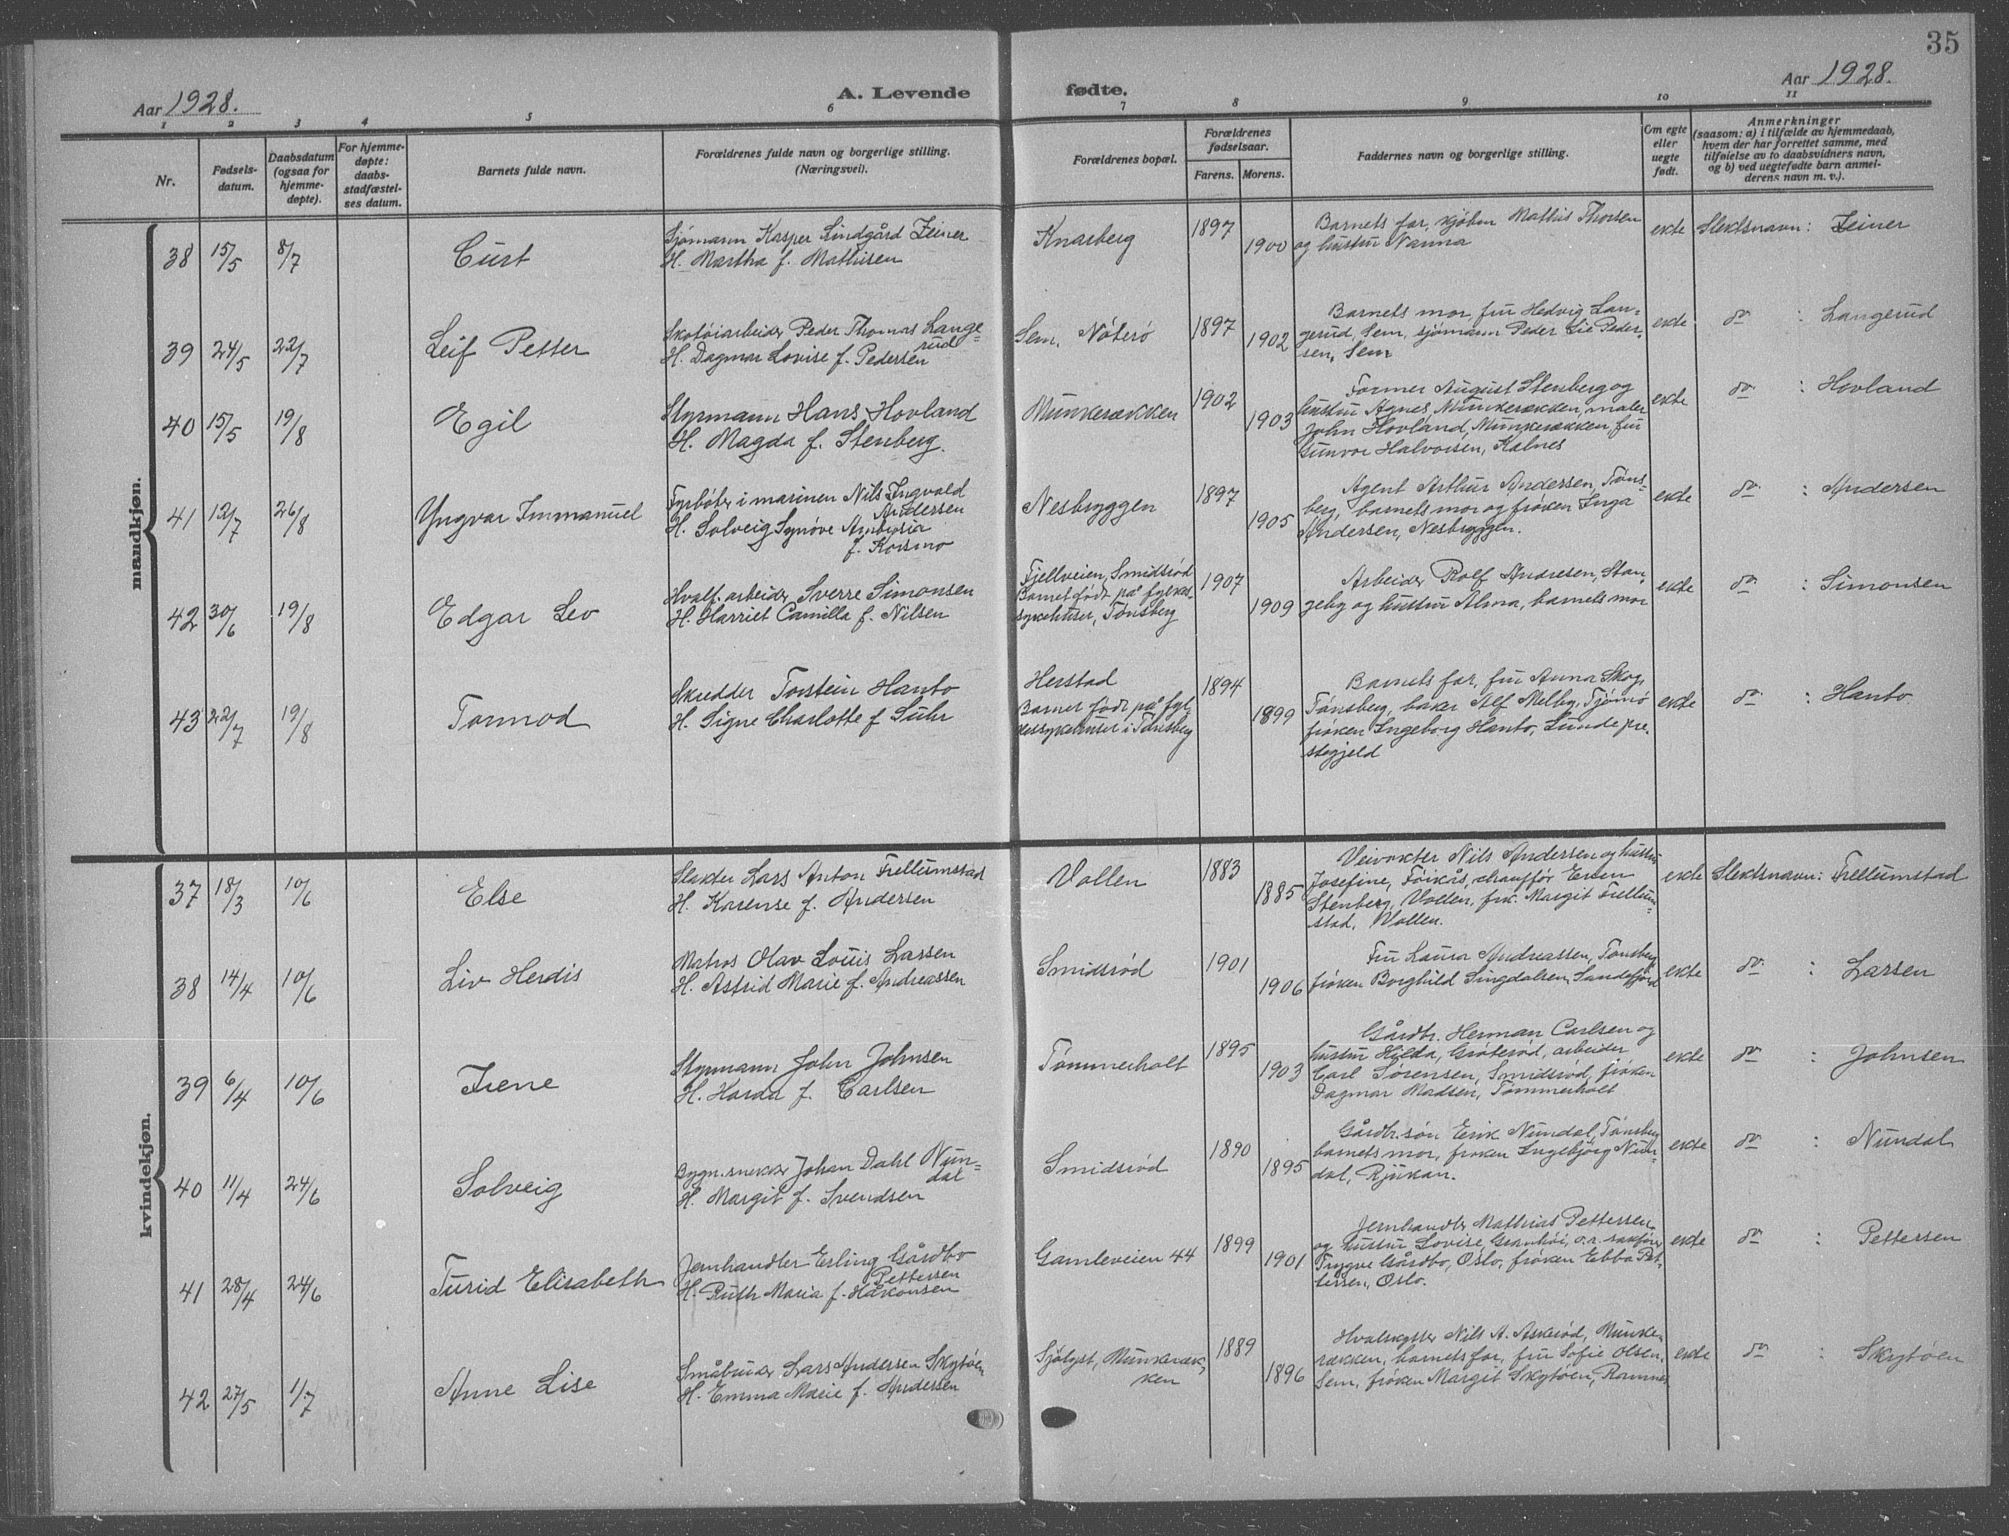 35
Aar 1928.
A. Levende fødte.
Aar 1928.
1 2 3 4 5 6 7 8 9 10 11
Nr.
Fødsels-
datum.
Daabsdatum
(ogsaa for
hjemme-
døpte).
For hjemme-
døpte:
daabs-
stadfæstel-
ses datum.
Barnets fulde navn.
Forældrenes fulde navn og borgerlige stilling.
(Næringsvei).
Forældrenes bopæl.
Forældrenes
fødselsaar.
Farens. Morens.
Faddernes navn og borgerlige stilling.
Om egte
eller
uegte
født.
Anmerkninger
(saasom: a) i tilfælde av hjemmedaab,
hvem der har forrettet samme, med
tilføielse av to daabsvidners navn,
og b) ved uegtefødte barn anmel-
derens navn m. v.).
mandkjøn.
38 15/5 8/7 Curt
Sjømann Kasper Lindgård Zeiner
H. Martha f. Mathisen
Knarberg
1897 1900
Barnets far, skjøben Mathis Thorsen
og hustru Nanna
ekte Slektsnavn: Zeiner
39 24/5 22/7 Leif Petter
Skotøiarbeider Peder Thomas Lange-
rud
H. Dagmar Lovise f. Pedersen
Sem, Nøterø
1897 1902
Barnets mor, fru Hedvig Lan-
gerud, Sem, sjømann Peder Lie Peder-
sen, Sem
ekte do : Langerud
40 15/5 19/8 Egil
Styrmann Hans Hovland
H. Magda f. Stenberg.
Munkerækken
1902 1903
Former August Stenberg og
hustru Agnes, Munkerækken, maler
John Hovland, Munkerækken, fru
Gunvor Halvorsen, Kalnes
ekte do : Hovland
41 12/7 26/8 Yngvar Immanuel
Fyrbøter i marinen Nils Ingvald
Andersen
H. Solveig Synøve Ambrosia
f. Korsmo
Nesbryggen
1897 1905
Agent Arthur Andersen, Tøns-
berg, barnets mor og frøken Inga
Andersen, Nesbryggen.
ekte do : Andersen
42 30/6 19/8 Edgar Leo
Hvalf. arbeider Sverre Simonsen
H. Harriet Camilla f. Nilsen
Fjellveien, Smidsrød
Barnet født på fylkes-
sykehuset, Tønsberg
1907 1909
Arbeider Rolf Andresen, Stan-
geby og hustru Alma, barnets mor
ekte do : Simonsen
43 22/7 19/8 Tormod
Skredder Torstein Hanto
H. Signe Charlotte f Suhr
Herstad
Barnet født på fyl-
kessykehuset i Tønsberg
1894 1899
Barnets far, fru Anna Skog,
Tønsberg, baker Alf Melby, Tjømø
frøken Ingeborg Hanto, Lunde pre-
stegjeld
ekte do : Hanto
kvindekjøn.
37 18/3 10/6 Else
Slakter Lars Anton Frellumstad
H. Karense f. Andersen
Vollen
1883 1885
Veivokter Nils Andersen og hustru
Josefine, Føikås, chauffør Einen
Stenberg, Vollen, frk. Margit Frellum-
stad, Vollen.
ekte Slektsnavn: Frellumstad
38 14/4 10/6 Liv Herdis
Matros Olav Louis Larsen
H. Astrid Marie f. Andreassen
Smidsrød
1901 1906
Fru Laura Andreassen, Tønsberg
frøken Borghild Lingdalsen, Sandefjord
ekte do : Larsen
39 6/4 10/6 Irene
Styrmann John Johnsen
H. Harda f. Carlsen
Tømmerholt
1895 1903
Gårdbr. Herman Carlsen og
hustru Hilda, Grøterød, arbeider
Carl Sørensen, Smidsrød, frøken
Dagmar Madsen, Tømmerholt
ekte do : Johnsen
40 11/4 24/6 Solveig
Bygn.snekker Johan Dahl Nun-
dal
H. Margit f. Svendsen
Smidsrød
1890 1895
Gårdbr.søn Erik Nundal, Tønsberg
barnets mor, frøken Ingebjørg Nun-
dal, Rjukan.
ekte do : Nundal
41 28/4 24/6 Turid Elisabeth
Jernhandler Erling Gårdbo
Pettersen
H. Ruth Maria f. Håkonsen
Gamleveien 44
1899 1901
Jernhandler Mathias Pettersen
og hustru Lovise, Granhøi, o.r. sakfører
Trygve Gårdbo, Oslo, frøken Ebba Pet-
tersen, Oslo.
ekte do : Pettersen
42 27/5 1/7 Anne Lise
Småbruker Lars Andersen Skytøen
H. Emma Marie f. Andersen
Sjølyst, Munkeræk-
ken
1889 1896
Hvalskytter Nils A. Askerød, Munke-
rækken, barnets far, fru Sofie Olsen,
Sem, frøken Margit Skytøen, Ramnes
ekte do : Skytøen